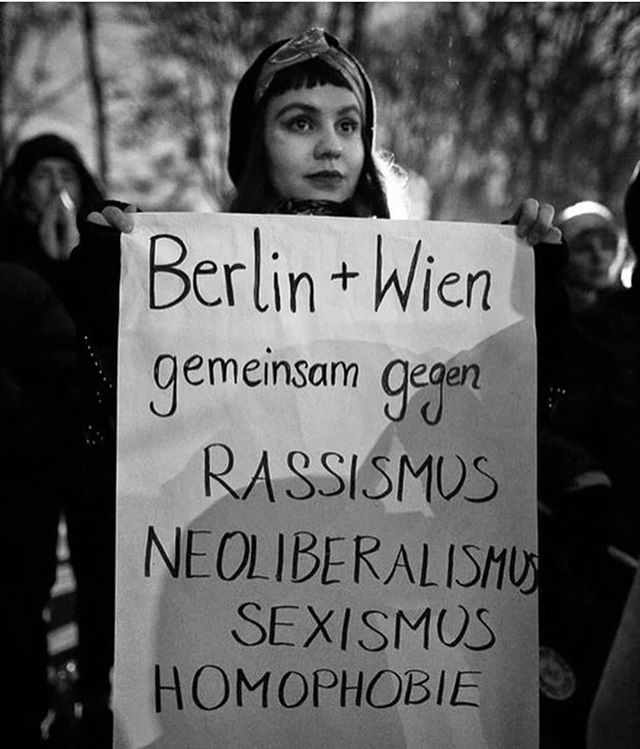 Berlin + Wien
gemeinsam gegen
RASSISMUS
NEOLIBERALISMUS
SEXISMUS
HOMOPHOBIE